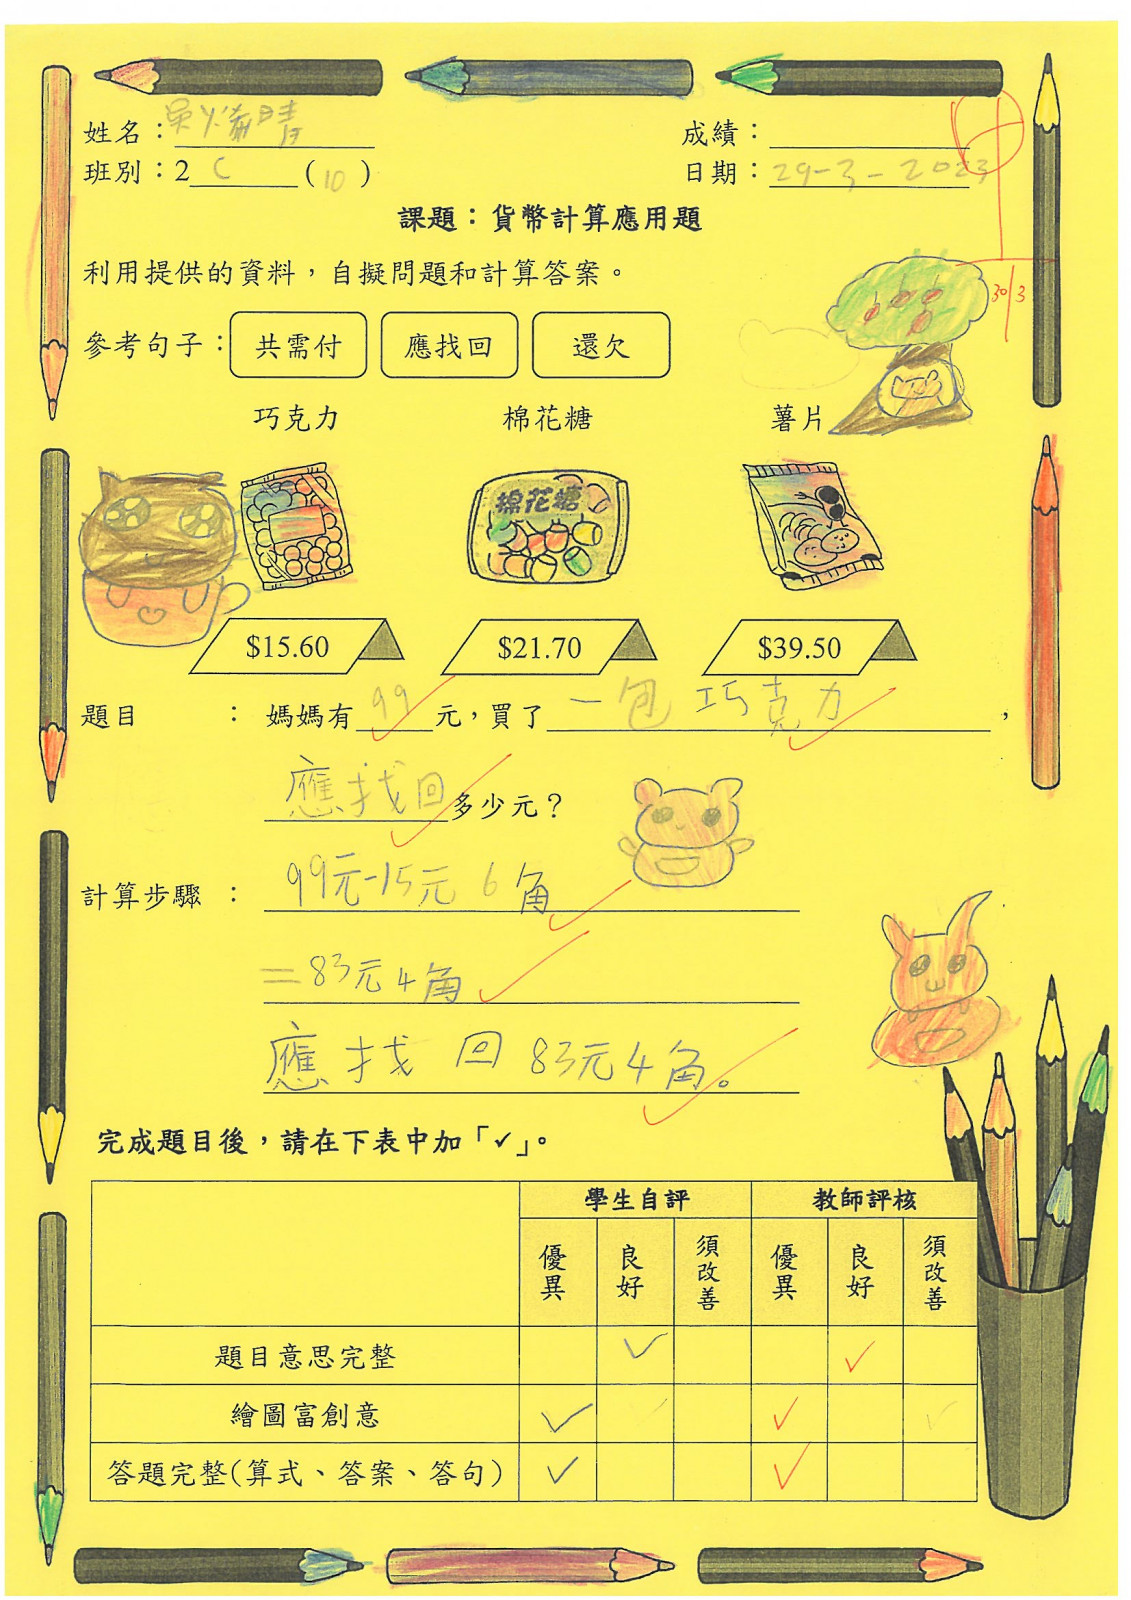 姓名：吳 晴
成績：
班別：2 C (10)
日期：29-3-2023
課題：貨幣計算應用題
利用提供的資料，自擬問題和計算答案。
30/3
參考句子： 共需付 應找回 還欠
巧克力 棉花糖 薯片
棉花糖
$15.60 $21.70 $39.50
題目 ： 媽媽有 99 元，買了 一包 巧克力 ，
應找回多少元？
計算步驟 ： 99元-15元 6角
=83元4角
應找回 83元4角。
完成題目後，請在下表中加「✓」。
學生自評 教師評核
優異 良好 須改善 優異 良好 須改善
題目意思完整 ✓ ✓
繪圖富創意 ✓ ✓
答題完整(算式、答案、答句) ✓ ✓